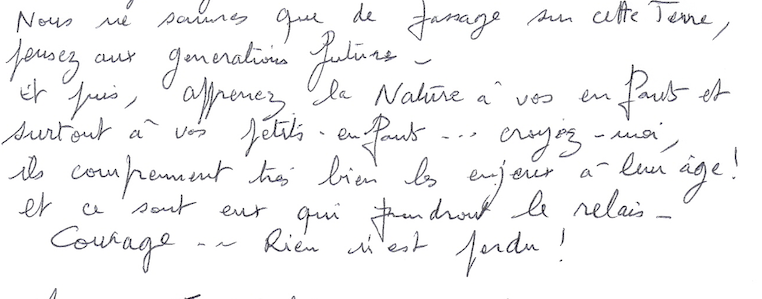 Nous ne sommes que de passage sur cette Terre,
pensez aux generations future -
Et puis, apprenez la Nature à vos enfants et
surtout à vos petits-enfant --- croyez-moi,
ils comprennent très bien les enjeux à leur âge !
et ce sont eux qui prendront le relais -
Courage -- Rien n'est perdu !